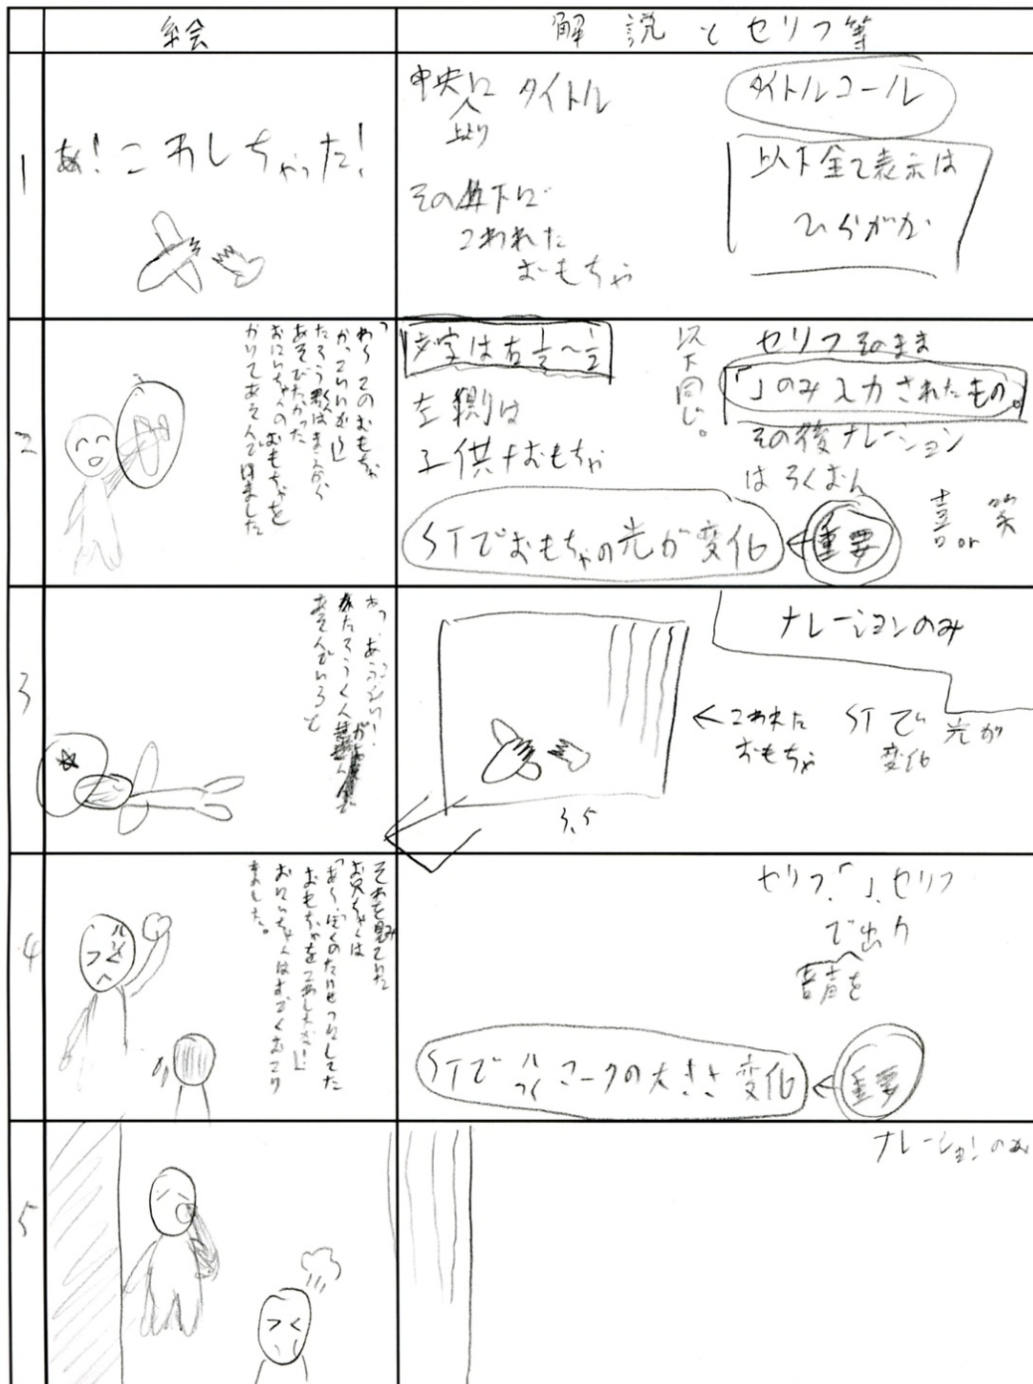 絵
解説とセリフ等
1
あ!こわしちゃった!
中央に タイトル
上より
その下に
こわれた
おもちゃ
タイトルコール
以下全て表示は
ひらがな
2
「わ~このおもちゃ
かっていいな~」
たろう君はまえから
あそびたかった
おにいちゃんのおもちゃを
かりてあそんでいました
文字は右⅓~½
左側は
子供+おもちゃ
以下同じ。
セリフそのまま
「」のみ入力されたもの。
その後ナレーション
はろくおん
喜or笑
STでおもちゃの光が変化
←重要
3
たろうくんが
あそんでいると
ナレーションのみ
←こわれた
おもちゃ
STで光が
変化
3.5
4
それを見ていた
お兄ちゃんは
「あ~、ぼくのたいせつにしてた
おもちゃをこわしたな!」
おにいちゃんはすごくおこり
ました。
セリフ、「」、セリフ
で出力
音声を
STで マークの大きさ変化
←重要
5
ナレーションのみ